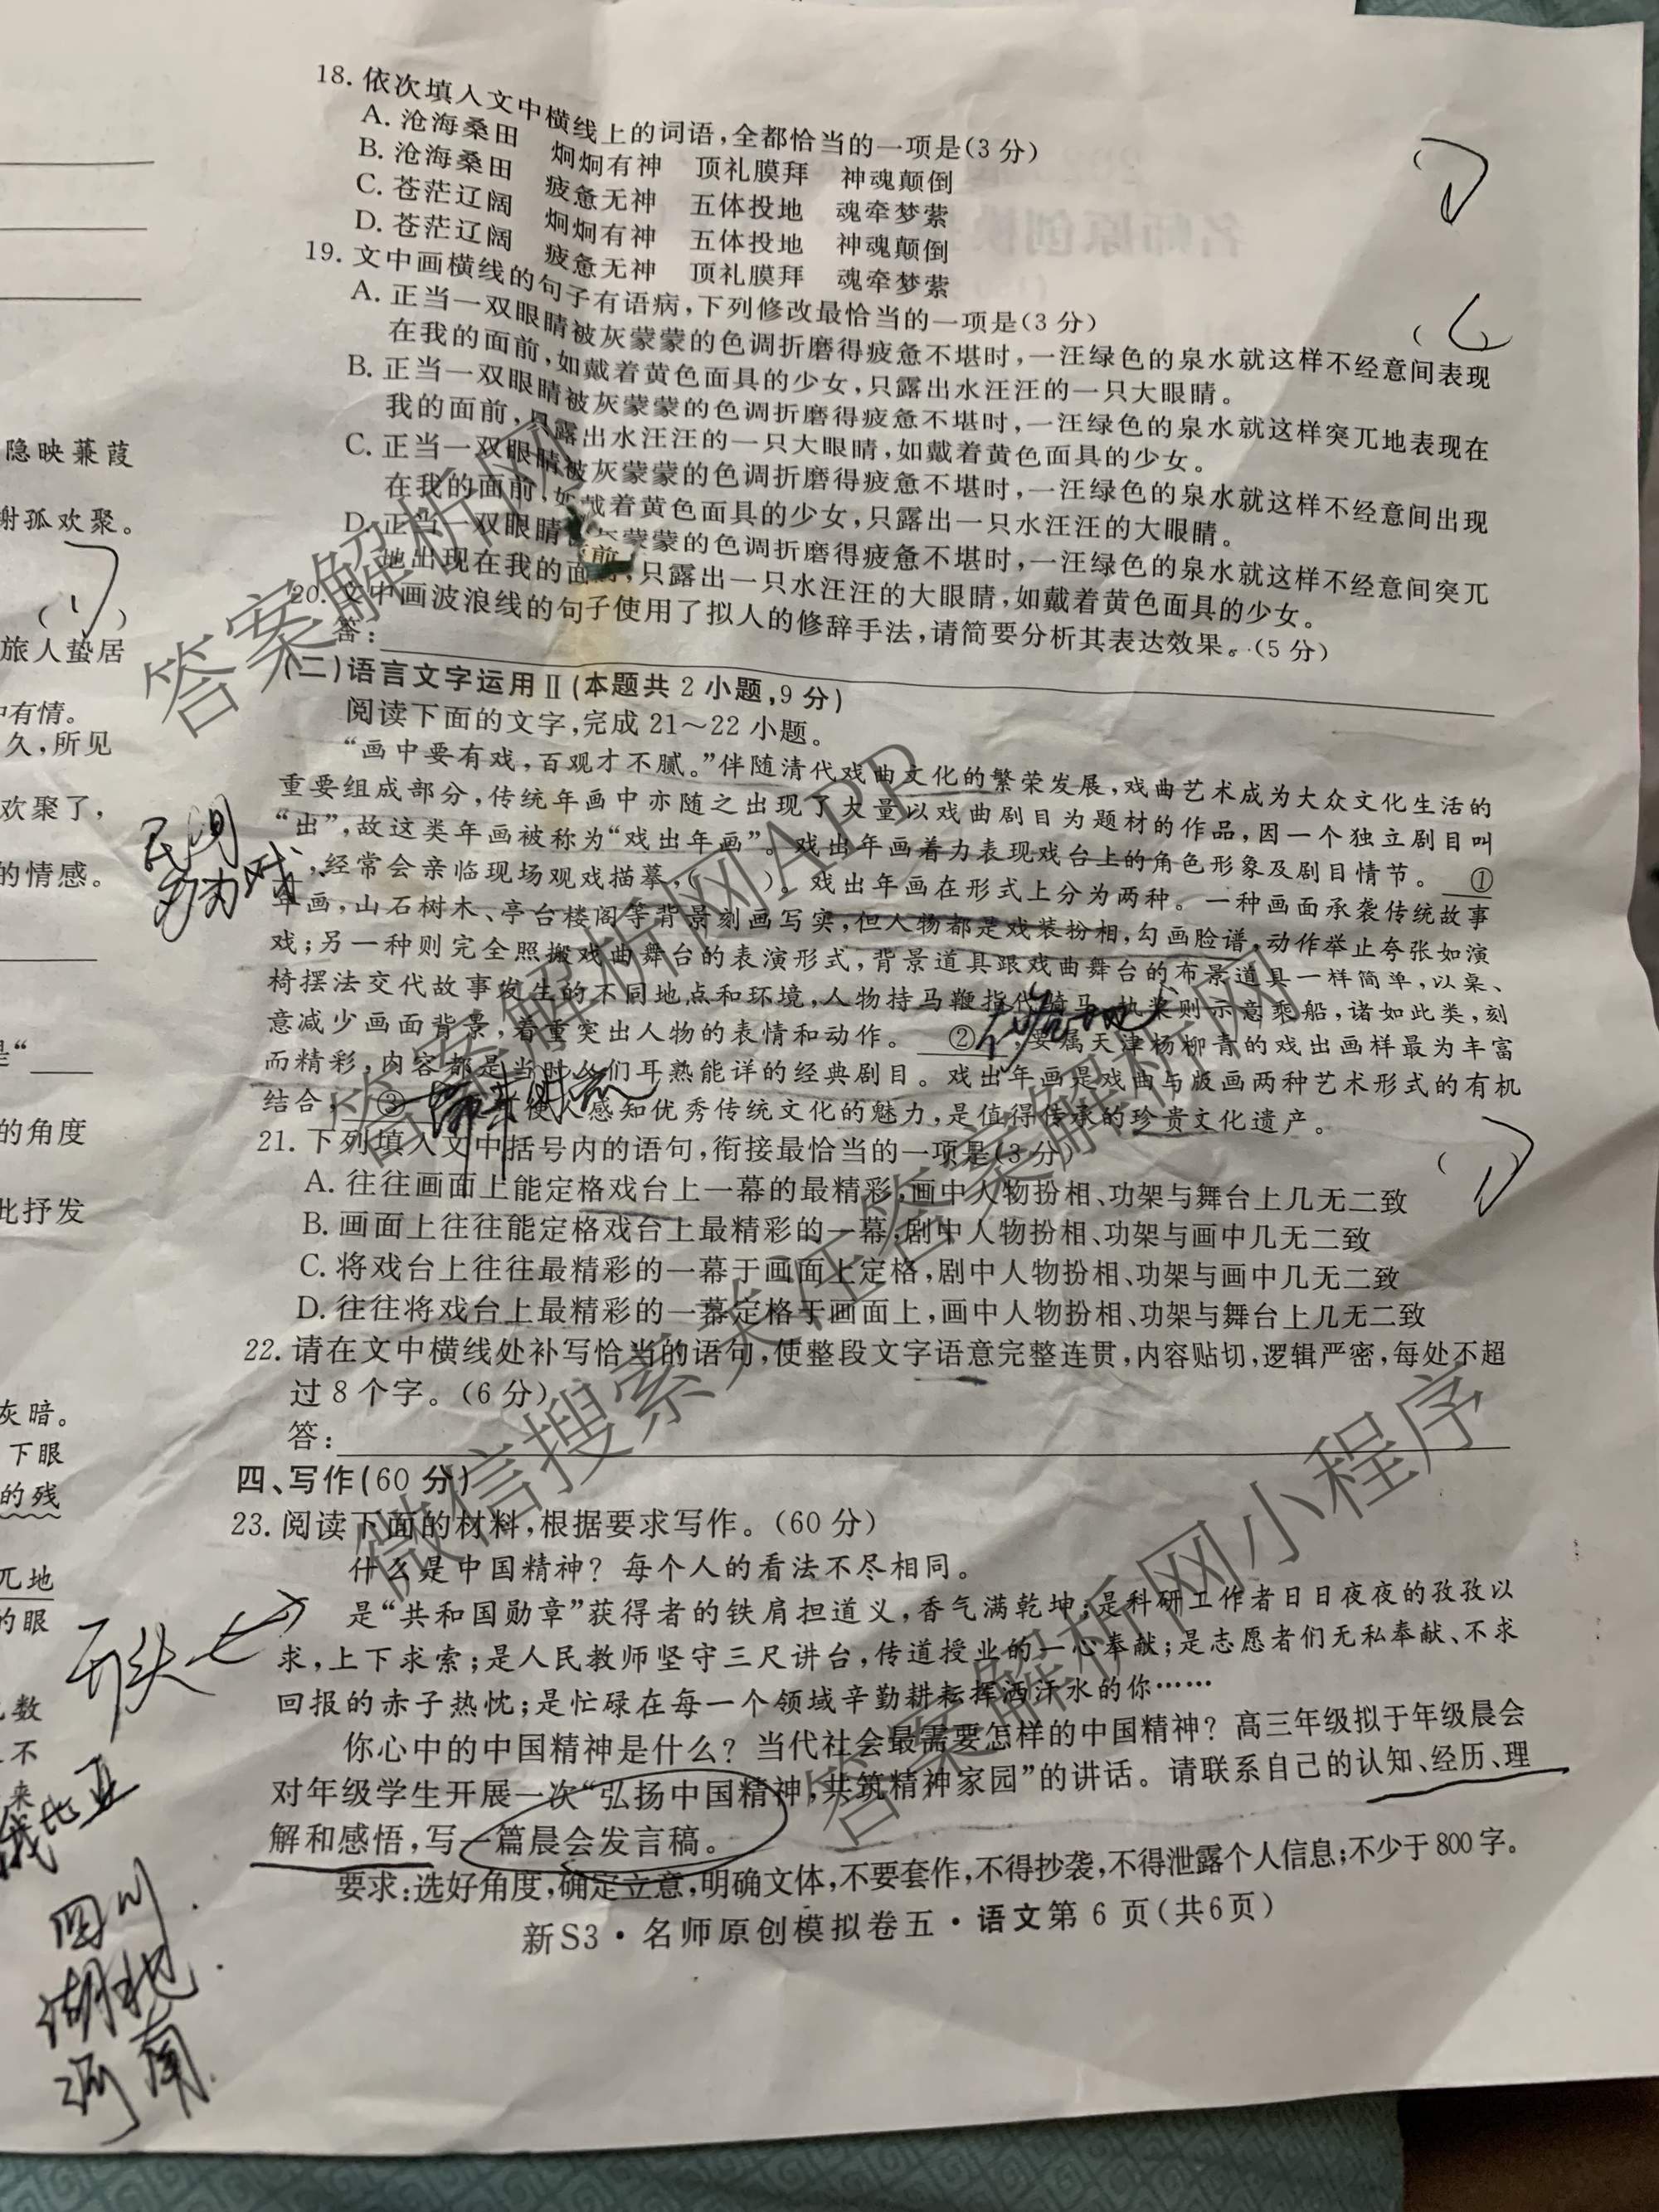 隐映蒹葭
谢孤欢聚。
(1)
旅人蛰居
中有情。
久,所见
欢聚了,
的情感。
是“
的角度
此抒发
灰暗。
下眼
的残
兀地
的眼
数
不
来
18. 依次填入文中横线上的词语,全都恰当的一项是(3分)
A. 沧海桑田 炯炯有神 顶礼膜拜 神魂颠倒
B. 沧海桑田 疲惫无神 五体投地 魂牵梦萦
C. 苍茫辽阔 炯炯有神 五体投地 神魂颠倒
D. 苍茫辽阔 疲惫无神 顶礼膜拜 魂牵梦萦
19. 文中画横线的句子有语病,下列修改最恰当的一项是(3分)
A. 正当一双眼睛被灰蒙蒙的色调折磨得疲惫不堪时,一汪绿色的泉水就这样不经意间表现
在我的面前,如戴着黄色面具的少女,只露出水汪汪的一只大眼睛。
B. 正当一双眼睛被灰蒙蒙的色调折磨得疲惫不堪时,一汪绿色的泉水就这样突兀地表现在
我的面前,只露出水汪汪的一只大眼睛,如戴着黄色面具的少女。
C. 正当一双眼睛被灰蒙蒙的色调折磨得疲惫不堪时,一汪绿色的泉水就这样不经意间出现
在我的面前,如戴着黄色面具的少女,只露出一只水汪汪的大眼睛。
D. 正当一双眼睛 蒙蒙的色调折磨得疲惫不堪时,一汪绿色的泉水就这样不经意间突兀
地出现在我的面前,只露出一只水汪汪的大眼睛,如戴着黄色面具的少女。
20. 文中画波浪线的句子使用了拟人的修辞手法,请简要分析其表达效果。(5分)
答:
(二)语言文字运用Ⅱ(本题共2小题,9分)
阅读下面的文字,完成21~22小题。
“画中要有戏,百观才不腻。”伴随清代戏曲文化的繁荣发展,戏曲艺术成为大众文化生活的
重要组成部分,传统年画中亦随之出现了大量以戏曲剧目为题材的作品,因一个独立剧目叫
“出”,故这类年画被称为“戏出年画”。戏出年画着力表现戏台上的角色形象及剧目情节。 ①
,经常会亲临现场观戏描摹,( )。戏出年画在形式上分为两种。一种画面承袭传统故事
年画,山石树木、亭台楼阁等背景刻画写实,但人物都是戏装扮相,勾画脸谱,动作举止夸张如演
戏;另一种则完全照搬戏曲舞台的表演形式,背景道具跟戏曲舞台的布景道具一样简单,以桌、
椅摆法交代故事发生的不同地点和环境,人物持马鞭指代骑马,执桨则示意乘船,诸如此类,刻
意减少画面背景,着重突出人物的表情和动作。 ② ,要属天津杨柳青的戏出画样最为丰富
而精彩,内容都是当时人们耳熟能详的经典剧目。戏出年画是戏曲与版画两种艺术形式的有机
结合, ③ 使人感知优秀传统文化的魅力,是值得传承的珍贵文化遗产。
21. 下列填入文中括号内的语句,衔接最恰当的一项是(3分)
A. 往往画面上能定格戏台上一幕的最精彩,画中人物扮相、功架与舞台上几无二致
B. 画面上往往能定格戏台上最精彩的一幕,剧中人物扮相、功架与画中几无二致
C. 将戏台上往往最精彩的一幕于画面上定格,剧中人物扮相、功架与画中几无二致
D. 往往将戏台上最精彩的一幕定格于画面上,画中人物扮相、功架与舞台上几无二致
22. 请在文中横线处补写恰当的语句,使整段文字语意完整连贯,内容贴切,逻辑严密,每处不超
过8个字。(6分)
答:
四、写作(60分)
23. 阅读下面的材料,根据要求写作。(60分)
什么是中国精神?每个人的看法不尽相同。
是“共和国勋章”获得者的铁肩担道义,香气满乾坤;是科研工作者日日夜夜的孜孜以
求,上下求索;是人民教师坚守三尺讲台,传道授业的一心奉献;是志愿者们无私奉献、不求
回报的赤子热忱;是忙碌在每一个领域辛勤耕耘挥洒汗水的你……
你心中的中国精神是什么?当代社会最需要怎样的中国精神?高三年级拟于年级晨会
对年级学生开展一次“弘扬中国精神,共筑精神家园”的讲话。请联系自己的认知、经历、理
解和感悟,写一篇晨会发言稿。
要求:选好角度,确定立意,明确文体,不要套作,不得抄袭,不得泄露个人信息;不少于800字。
新S3·名师原创模拟卷五·语文第6页(共6页)
民间
四川
湖北
河南
答案解析网
答案解析网APP
微信搜索关注答案解析网
答案解析网小程序